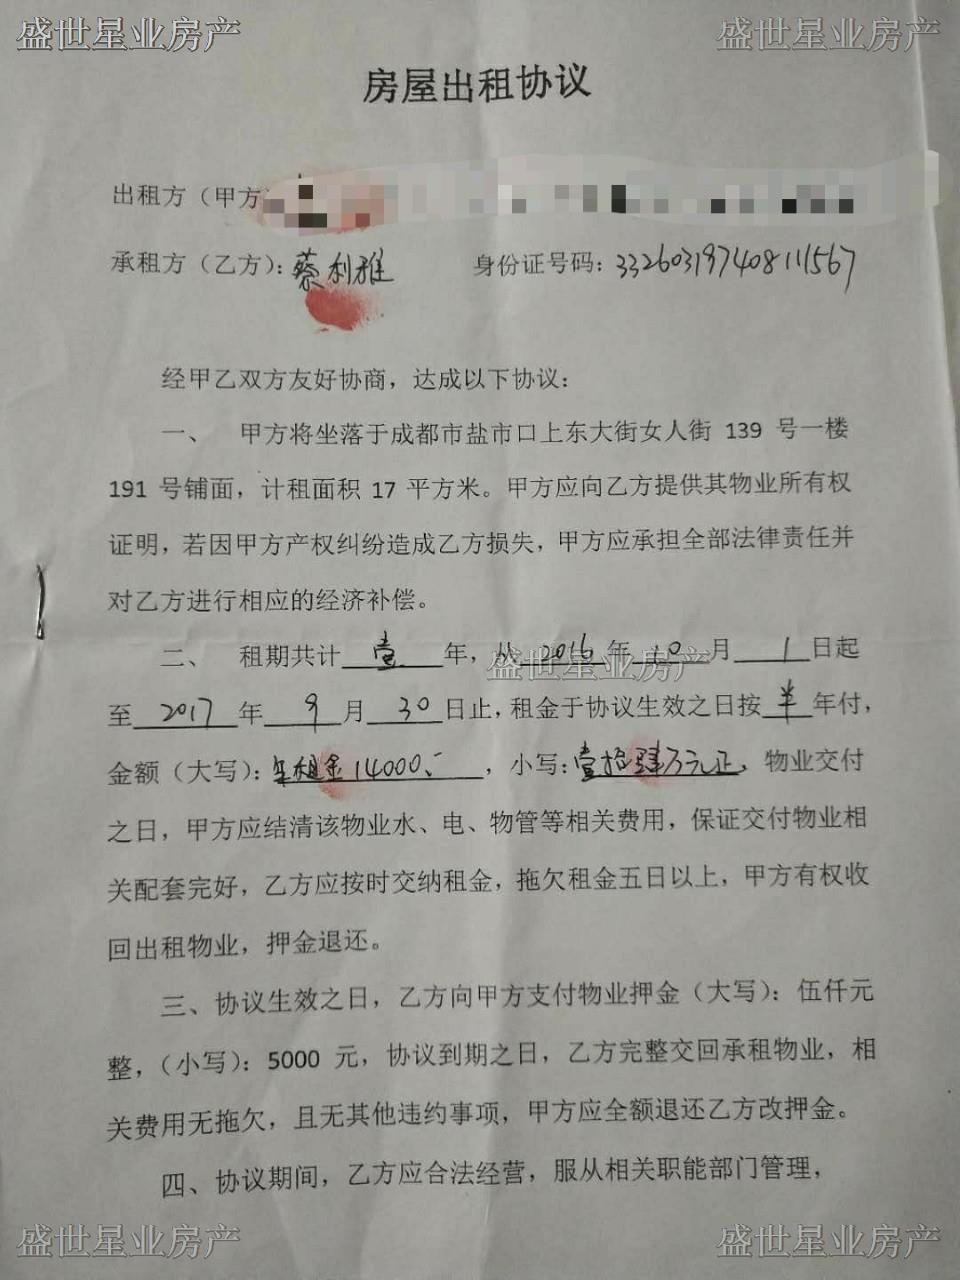 盛世星业房产 盛世星业房产
房屋出租协议
出租方（甲方
承租方（乙方）：蔡利雅 身份证号码：332603197408111567
经甲乙双方友好协商，达成以下协议：
一、 甲方将坐落于成都市盐市口上东大街女人街 139 号一楼
191 号铺面，计租面积 17 平方米。甲方应向乙方提供其物业所有权
证明，若因甲方产权纠纷造成乙方损失，甲方应承担全部法律责任并
对乙方进行相应的经济补偿。
二、 租期共计 壹 年，从 2016 年 10 月 1 日起
盛世星业房产
至 2017 年 9 月 30 日止，租金于协议生效之日按 半 年付，
金额（大写）：年租金14000、- ，小写：壹拾肆万元正，物业交付
之日，甲方应结清该物业水、电、物管等相关费用，保证交付物业相
关配套完好，乙方应按时交纳租金，拖欠租金五日以上，甲方有权收
回出租物业，押金退还。
三、协议生效之日，乙方向甲方支付物业押金（大写）：伍仟元
整，（小写）：5000 元，协议到期之日，乙方完整交回承租物业，相
关费用无拖欠，且无其他违约事项，甲方应全额退还乙方改押金。
四、协议期间，乙方应合法经营，服从相关职能部门管理，
盛世星业房产 盛世星业房产